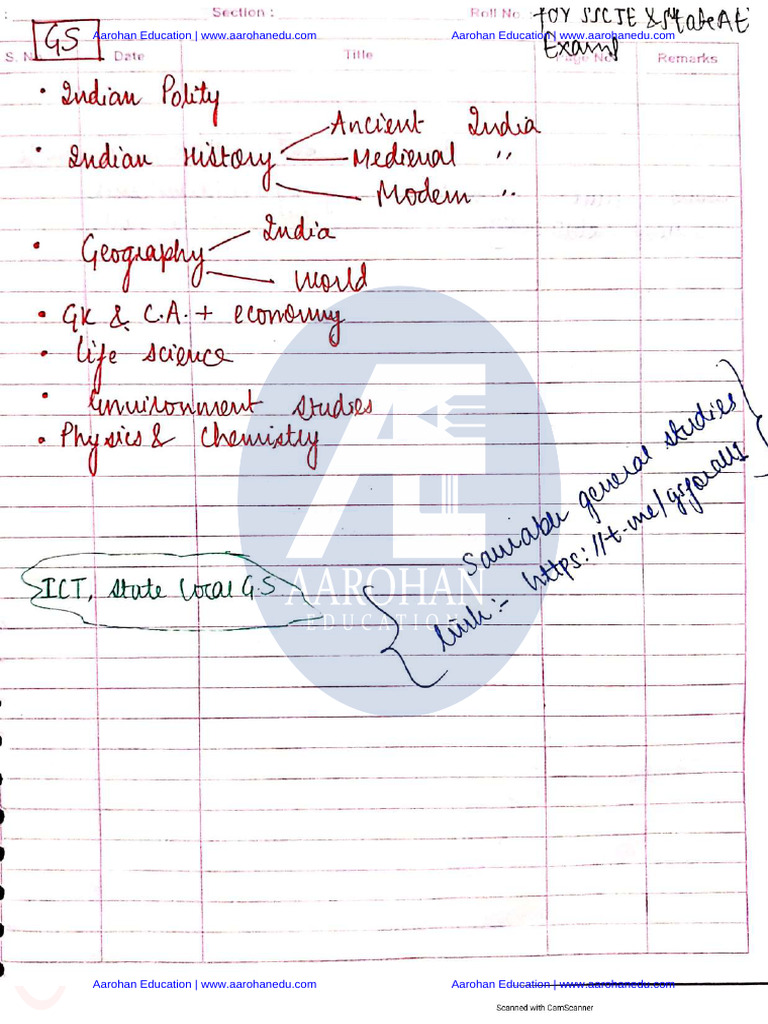 Section :
Roll No. :
for SSCJE & State AE
GS
Aarohan Education | www.aarohanedu.com
Aarohan Education | www.aarohanedu.com
Exams
S. No.
Date
Title
Page No.
Remarks
• Indian Polity
• Indian History
Ancient India
Medieval "
Modern "
• Geography
India
World
• GK & C.A. + economy
• life science
• Environment studies
• Physics & Chemistry
Saurabh general studies
link:- https://t.me/gsforalls
ICT, state local G.S
AE
AAROHAN
EDUCATION
Aarohan Education | www.aarohanedu.com
Aarohan Education | www.aarohanedu.com
Scanned with CamScanner